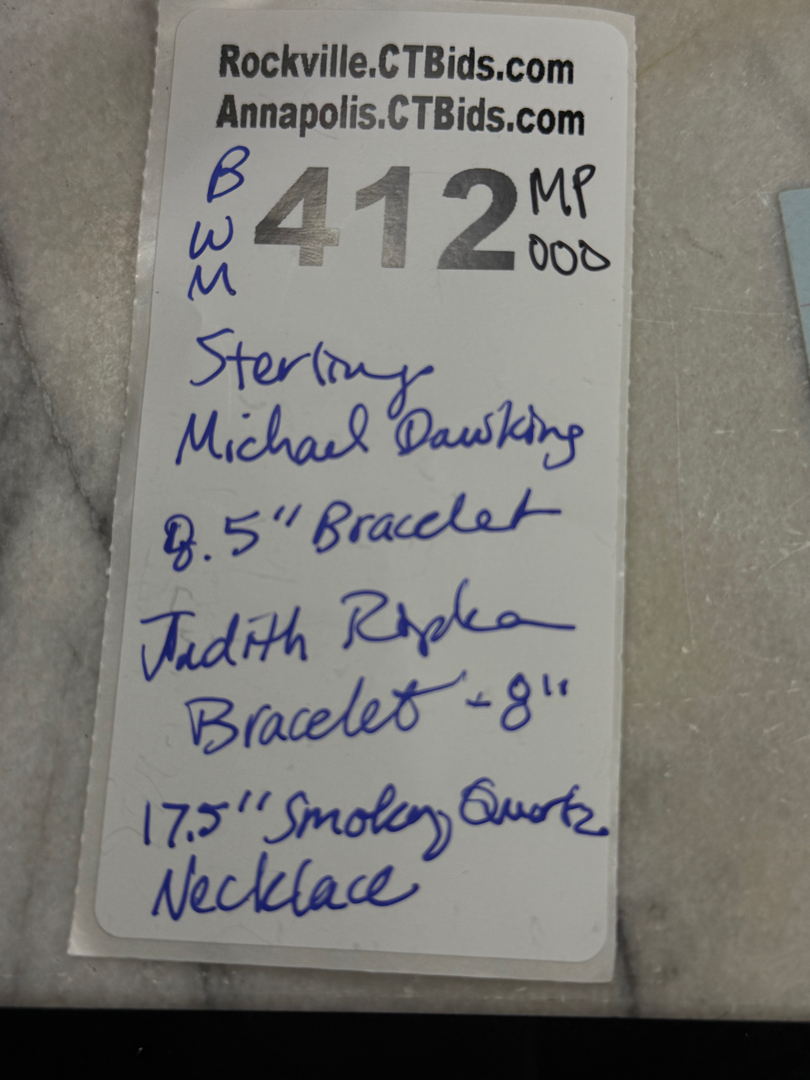 Rockville.CTBids.com
Annapolis.CTBids.com
B
W
M
412
MP
000
Sterling
Michael Dawking
8.5" Bracelet
Judith Ripka
Bracelet - 8"
17.5" Smokey Quartz
Necklace